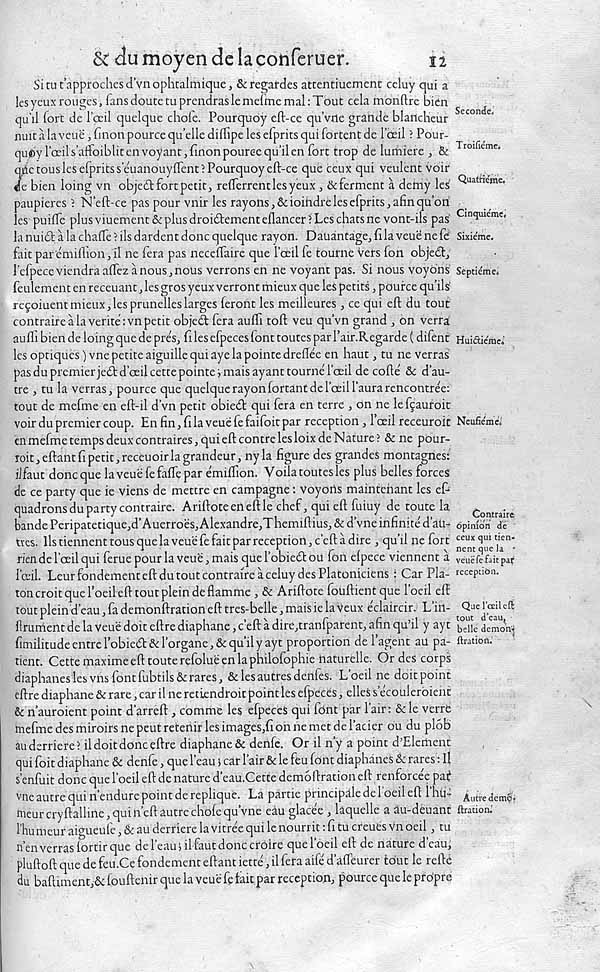 & du moyen de la conſeruer. 12
Si tu t'approches d'vn ophtalmique, & regardes attentiuement celuy qui a
les yeux rouges, ſans doute tu prendras le meſme mal: Tout cela monſtre bien
qu'il ſort de l'œil quelque choſe. Pourquoy eſt-ce qu'vne grande blancheur
Seconde.
nuit à la veuë, ſinon pource qu'elle diſſipe les eſprits qui ſortent de l'œil ? Pour-
quoy l'œil s'affoiblit en voyant, ſinon pource qu'il en ſort trop de lumiere, &
Troiſiéme.
que tous les eſprits s'éuanouyſſent? Pourquoy eſt-ce que ceux qui veulent voir
de bien loing vn obiect fort petit, reſſerrent les yeux, & ferment à demy les
Quatriéme.
paupieres ? N'eſt-ce pas pour vnir les rayons, & ioindre les eſprits, afin qu'on
les puiſſe plus viuement & plus droictement eſlancer ? Les chats ne vont-ils pas
Cinquiéme.
la nuict à la chaſſe ? ils dardent donc quelque rayon. Dauantage, ſi la veuë ne ſe
Sixiéme.
fait par émiſſion, il ne ſera pas neceſſaire que l'œil ſe tourne vers ſon obiect,
l'eſpece viendra aſſez à nous, nous verrons en ne voyant pas. Si nous voyons
Septiéme.
ſeulement en receuant, les gros yeux verront mieux que les petits, pource qu'ils
reçoiuent mieux, les prunelles larges ſeront les meilleures, ce qui eſt du tout
contraire à la verité: vn petit obiect ſera auſſi toſt veu qu'vn grand, on verra
auſſi bien de loing que de prés, ſi les eſpeces ſont toutes par l'air. Regarde (diſent
Huictiéme.
les optiques) vne petite aiguille qui aye la pointe dreſſée en haut, tu ne verras
pas du premier ject d'œil cette pointe; mais ayant tourné l'œil de coſté & d'au-
tre, tu la verras, pource que quelque rayon ſortant de l'œil l'aura rencontrée:
tout de meſme en eſt-il d'vn petit obiect qui ſera en terre, on ne le ſçauroit
voir du premier coup. En fin, ſi la veuë ſe faiſoit par reception, l'œil receuroit
Neufiéme.
en meſme temps deux contraires, qui eſt contre les loix de Nature ? & ne pour-
roit, eſtant ſi petit, receuoir la grandeur, ny la figure des grandes montagnes:
il faut donc que la veuë ſe faſſe par émiſſion. Voila toutes les plus belles forces
de ce party que ie viens de mettre en campagne : voyons maintenant les eſ-
quadrons du party contraire. Ariſtote en eſt le chef, qui eſt ſuiuy de toute la
bande Peripatetique, d'Auerroës, Alexandre, Themiſtius, & d'vne infinité d'au-
tres. Ils tiennent tous que la veuë ſe fait par reception, c'eſt à dire, qu'il ne ſort
rien de l'œil qui ſerue pour la veuë, mais que l'obiect ou ſon eſpece viennent à
l'œil. Leur fondement eſt du tout contraire à celuy des Platoniciens : Car Pla-
Contraire
opinion de
ceux qui tien-
nent que la
veuë ſe fait par
reception.
ton croit que l'oeil eſt tout plein de flamme, & Ariſtote ſouſtient que l'oeil eſt
tout plein d'eau, ſa demonſtration eſt tres-belle, mais ie la veux éclaircir. L'in-
ſtrument de la veuë doit eſtre diaphane, c'eſt à dire, tranſparent, afin qu'il y ayt
Que l'œil eſt
tout d'eau,
belle demon-
ſtration.
ſimilitude entre l'obiect & l'organe, & qu'il y ayt proportion de l'agent au pa-
tient. Cette maxime eſt toute reſoluë en la philoſophie naturelle. Or des corps
diaphanes les vns ſont ſubtils & rares, & les autres denſes. L'oeil ne doit point
eſtre diaphane & rare, car il ne retiendroit point les eſpeces, elles s'écouleroient
& n'auroient point d'arreſt, comme les eſpeces qui ſont par l'air : & le verre
meſme des miroirs ne peut retenir les images, ſi on ne met de l'acier ou du plõb
au derriere ? il doit donc eſtre diaphane & denſe. Or il n'y a point d'Element
qui ſoit diaphane & denſe, que l'eau; car l'air & le feu ſont diaphanes & rares: Il
s'enſuit donc que l'oeil eſt de nature d'eau. Cette demõſtration eſt renforcée par
vne autre qui n'endure point de replique. La partie principale de l'oeil eſt l'hu-
Autre demõ-
ſtration.
meur cryſtalline, qui n'eſt autre choſe qu'vne eau glacée, laquelle a au-deuant
l'humeur aigueuſe, & au derriere la vitrée qui le nourrit : ſi tu creues vn oeil, tu
n'en verras ſortir que de l'eau; il faut donc croire que l'oeil eſt de nature d'eau,
pluſtoſt que de feu. Ce fondement eſtant ietté, il ſera aiſé d'aſſeurer tout le reſte
du baſtiment, & ſouſtenir que la veuë ſe fait par reception, pource que le propre